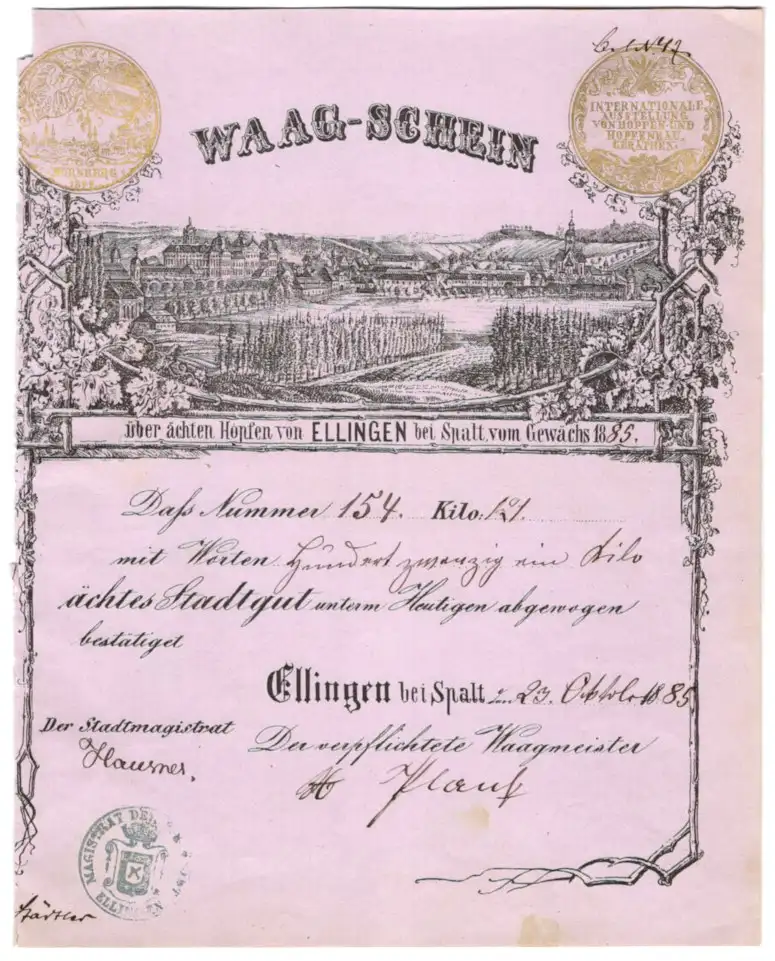 NÜRNBERG
1877.
INTERNATIONALE
AUSSTELLUNG
VON HOPFEN UND
HOPFENBAU
GERÄTHEN.
WAAG-SCHEIN
über ächten Hopfen von ELLINGEN bei Spalt, vom Gewächs 1885.
Daſs Nummer 154. Kilo: 121.
mit Worten Hundert zwanzig ein Kilo
ächtes Stadtgut unterm Heutigen abgewogen
bestätiget
Ellingen bei Spalt, 23. Oktober 1885
Der Stadtmagistrat
Der verpflichtete Waagmeister
Hausner.
Plank
MAGISTRAT DER STADT
ELLINGEN
Städtler